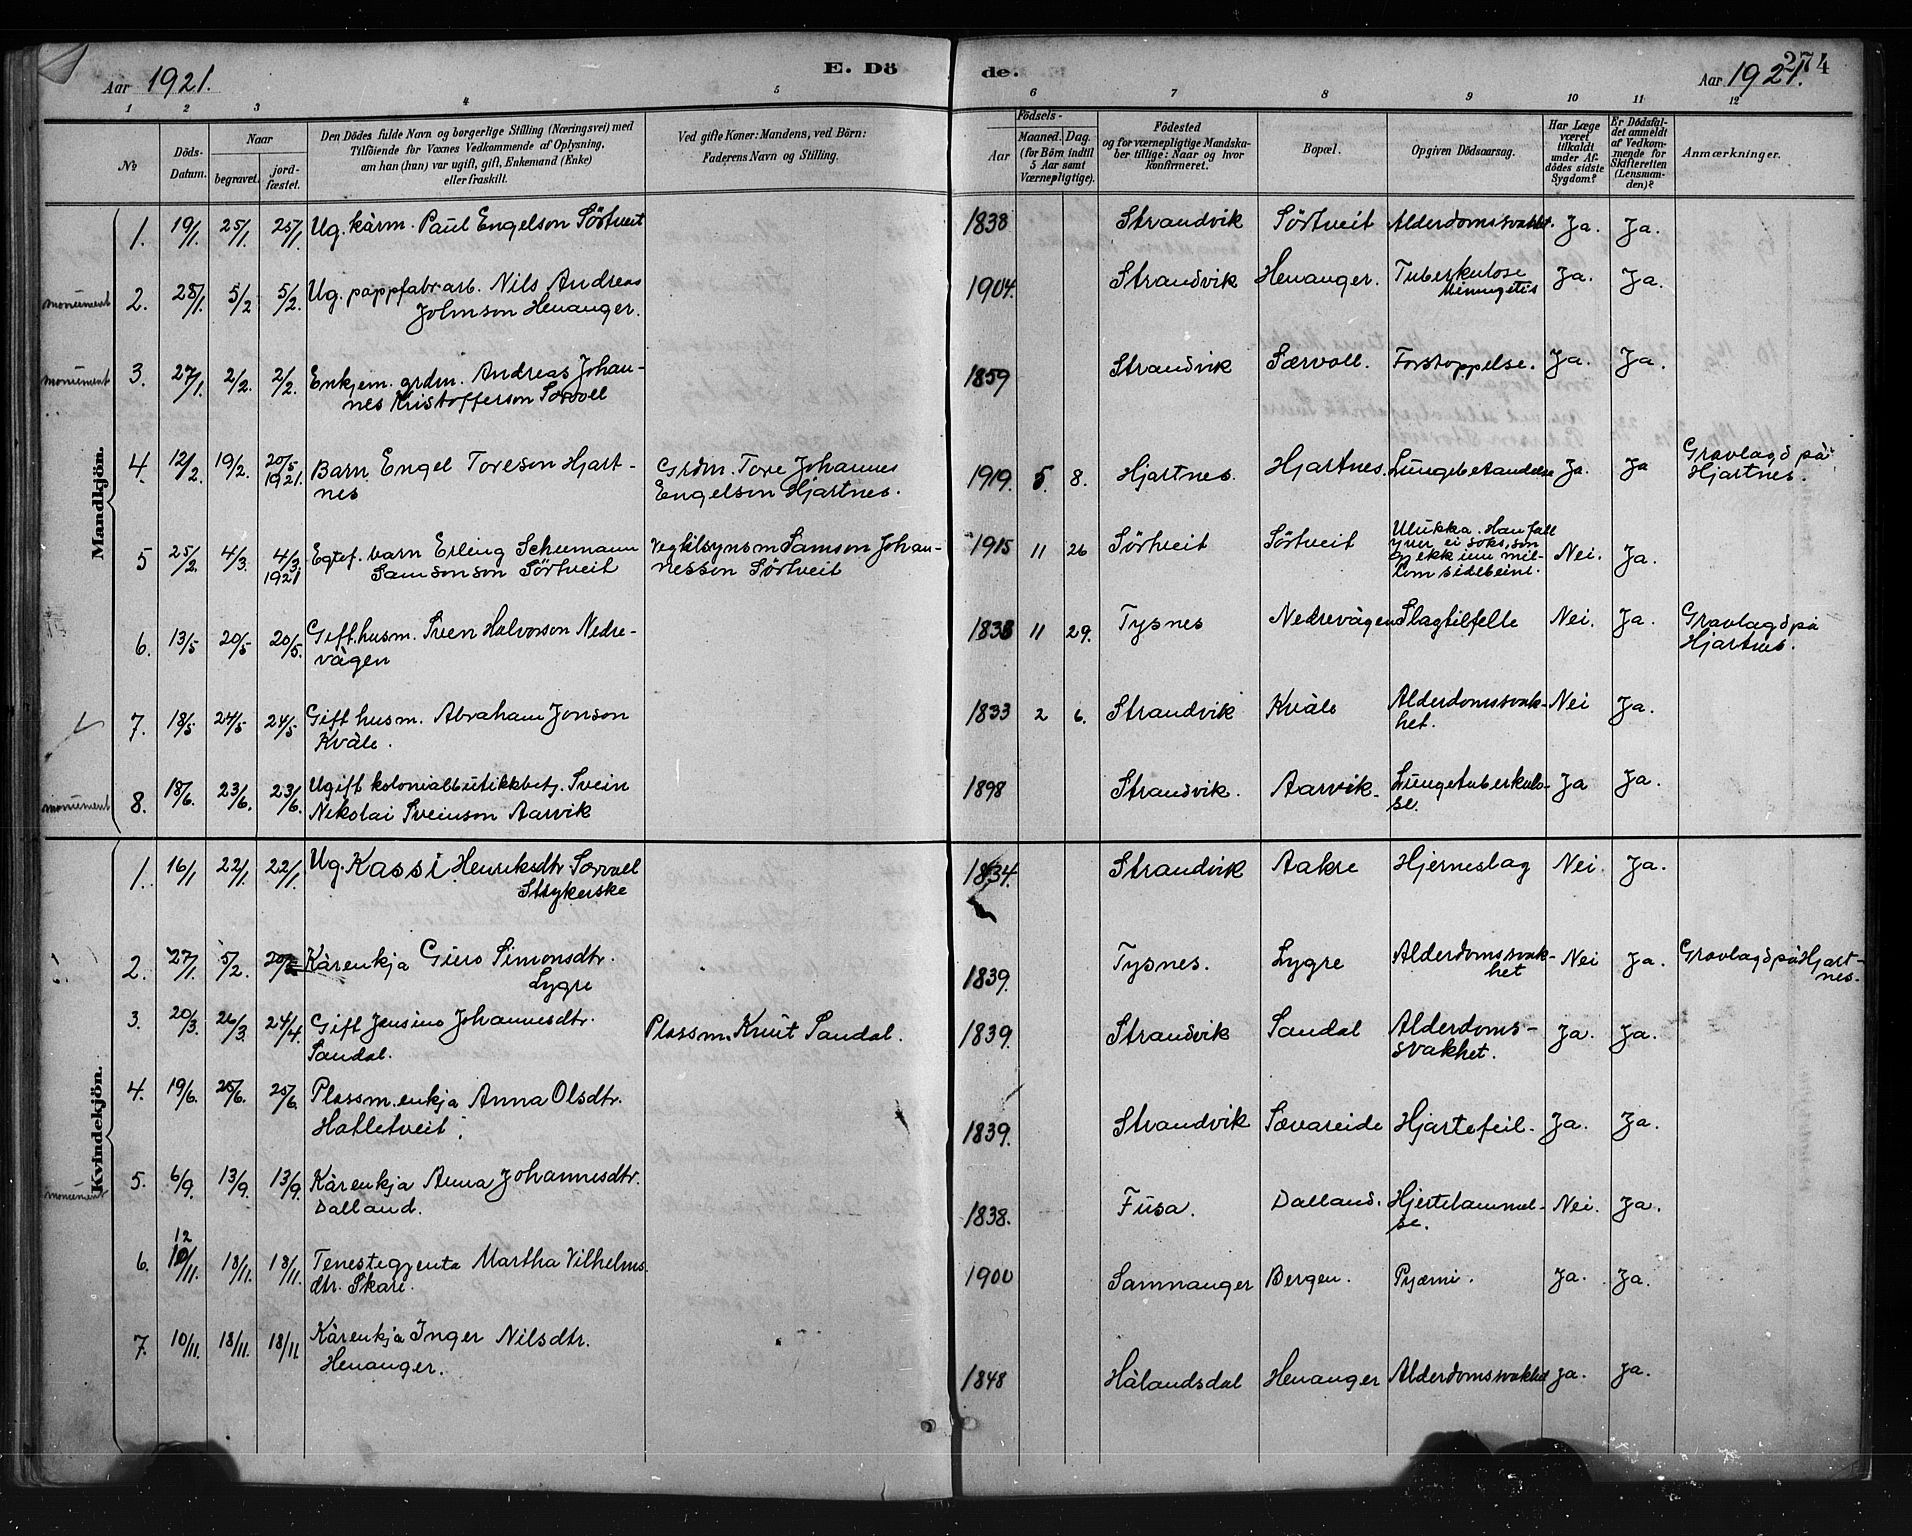 Aar 1921.
E. Dö
de.
274
Aar 1921.
1 2 3 4 5 6 7 8 9 10 11 12
No
Döds-
Datum.
Naar
begravet.
jord-
fæstet.
Den Dödes fulde Navn og borgerlige Stilling (Næringsvei) med
Tilföiende for Voxnes Vedkommende af Oplysning,
om han (hun) var ugift, gift, Enkemand (Enke)
eller fraskilt.
Ved gifte Koner: Mandens, ved Börn:
Faderens Navn og Stilling.
Födsels-
Aar
Maaned. Dag.
(for Börn indtil
5 Aar samt
Værnepligtige).
Födested
og for værnepligtige Mandska-
ber tillige: Naar og hvor
konfirmeret.
Bopæl.
Opgiven Dödsaarsag.
Har Læge
været
tilkaldt
under Af-
dödes sidste
Sygdom?
Er Dödsfal-
det anmeldt
af Vedkom-
mende for
Skifteretten
(Lensman-
den)?
Anmærkninger.
Mandkjön.
1. 19/1 25/1 25/1 Ug. kårm. Paul Engelson Sörtveit 1838 Strandvik Sörtveit Alderdomssvakhet. Ja. Ja.
monument 2. 28/1 5/2 5/2. Ug. pappfabr.arb. Nils Andreas 1904. Strandvik Henanger. Tuberkulose Ja. Ja.
Johnson Henanger. Meningetis
monument 3. 27/1. 2/2. 2/2. Enkjem. grdm. Andreas Johan- 1859 Strandvik Særvoll. Forstoppelse. Ja. Ja.
nes Kristofferson Særvoll
4. 12/2. 19/2. 20/5 1921. Barn Engel Toreson Hjart- Grdm. Tore Johannes 1919. 5. 8. Hjartnes. Hjartnes. Lungebetændelse Ja. Ja Gravlagd på
nes Engelson Hjartnes. Hjartnes.
5 25/2. 4/3. 4/3. 1921 Egtef. barn Erling Schumann Vegtilsynsm Samson Johan- 1915 11 26 Sörtveit Sörtveit Ulukka. Han fall Nei. Ja.
Samsonson Sörtveit nesson Sörtveit yver ei soks, son
gjekk inn mil-
lom sidebeini.
6. 13/5 20/5 20/5. Gift.husm. Sven Halvorson Nedre- 1838 11 29. Tysnes Nedrevågen Slagtilfelle Nei. Ja. Gravlagd på
vågen Hjartnes.
7. 18/5 24/5 24/5 Gift husm. Abraham Jonson 1833 2 6. Strandvik Kvåle Alderdomssvak- Nei Ja.
Kvåle. het.
monument 8. 18/6. 23/6. 23/6. Ugift kolonialbutikkbetj. Svein 1898 Strandvik. Aarvik. Lungetuberkulo- Ja Ja.
Nikolai Sveinson Aarvik se.
Kvindekjön.
1. 16/1 22/1. 22/1. Ug. Kassi Henriksdtr. Særvoll 1834. Strandvik Aakre Hjerneslag Nei. Ja.
Strykerske
2. 27/1. 5/2. 20/5 Kårenkja Guro Simonsdtr. 1839. Tysnes. Lygre Alderdomssvak- Nei Ja. Gravlagd på Hjart-
Lygre het nes.
3. 20/3. 26/3 24/4 Gift Jensine Johannesdtr. Plassm. Knut Sandal. 1839. Strandvik Sandal Alderdoms- Ja. Ja.
Sandal. svakhet.
4. 19/6. 25/6. 25/6 Plassm.enkja Anna Olsdtr. 1839. Strandvik Sævareide Hjartefeil. Ja. Ja.
Hatletveit.
monument 5. 6/9. 13/9. 13/9. Kårenkja Anna Johannesdtr. 1838. Fusa. Dalland. Hjertelammel- Nei. Ja.
Dalland. se.
12
6. 10/11. 18/11. 18/11. Tenestegjenta Martha Vilhelms. 1900 Samnanger Bergen. Pyæmi. Ja. Ja.
dtr. Skare.
7. 10/11. 18/11. 18/11 Kårenkja Inger Nilsdtr. 1848 Hålandsdal Henanger Alderdomssvakhet Ja. Ja.
Henanger.